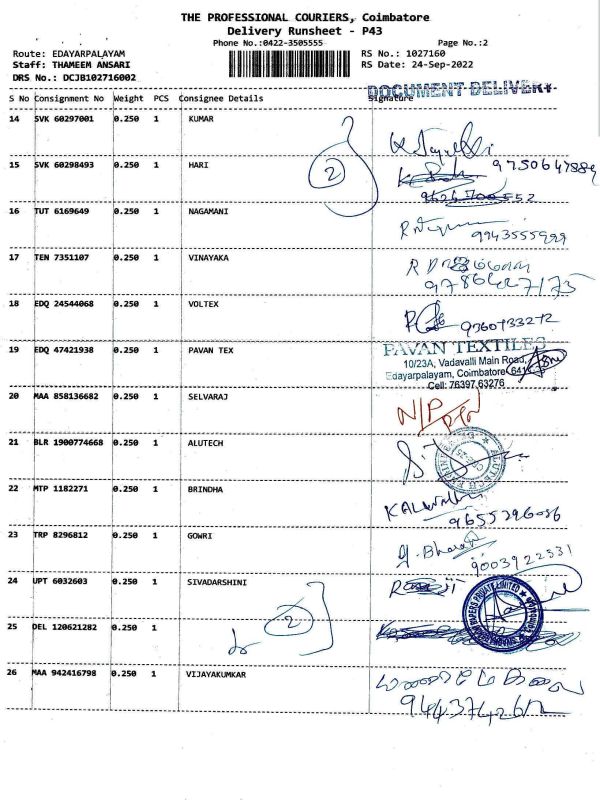 THE PROFESSIONAL COURIERS, Coimbatore
Delivery Runsheet - P43
Phone No.:0422-3505555
Page No.:2
Route: EDAYARPALAYAM
RS No.: 1027160
Staff: THAMEEM ANSARI
RS Date: 24-Sep-2022
DRS No.: DCJB102716002
DOCUMENT DELIVERY
S No Consignment No Weight PCS Consignee Details Signature
14 SVK 60297001 0.250 1 KUMAR
15 SVK 60298493 0.250 1 HARI
2
16 TUT 6169649 0.250 1 NAGAMANI
9943555999
17 TEN 7351107 0.250 1 VINAYAKA
18 EDQ 24544068 0.250 1 VOLTEX
19 EDQ 47421938 0.250 1 PAVAN TEX
PAVAN TEXTILES
10/23A, Vadavalli Main Road,
Edayarpalayam, Coimbatore
Cell: 76397 63276
20 MAA 858136682 0.250 1 SELVARAJ
N/P
21 BLR 1900774668 0.250 1 ALUTECH
22 MTP 1182271 0.250 1 BRINDHA
9655296086
23 TRP 8296812 0.250 1 GOWRI
G. Bharathi
9003922331
24 UPT 6032603 0.250 1 SIVADARSHINI
2
25 DEL 120621282 0.250 1
26 MAA 942416798 0.250 1 VIJAYAKUMKAR